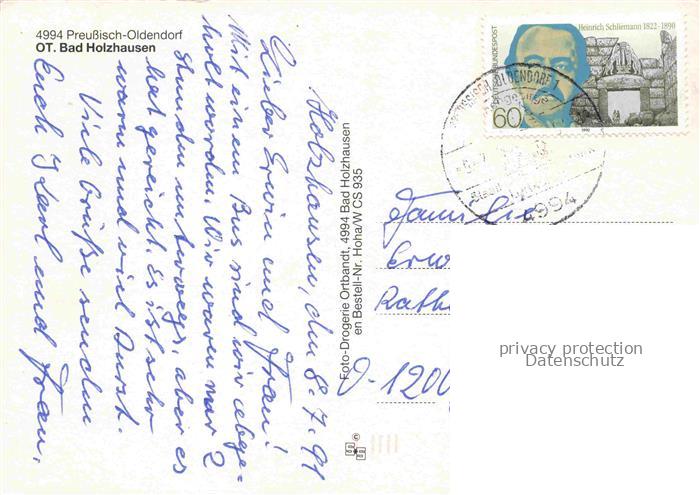 4994 Preußisch-Oldendorf
OT. Bad Holzhausen
Holzhausen, den 8.7.91
Lieber Erwin und Frau!
Mit einem Bus sind wir abge-
holt worden. Wir waren nur 2
Stunden unterwegs, aber es
hat gereicht. Es ist sehr
warm und viel Durst.
Viele Grüße senden
Euch Karl und Frau.
Foto-Drogerie Ortbandt, 4994 Bad Holzhausen
en Bestell-Nr. Hoha/W CS 935
Heinrich Schliemann 1822-1890
BUNDESPOST
60
1990
OLDENDORF 1
4994
Familie
Erw
Rath
O-1200
privacy protection
Datenschutz